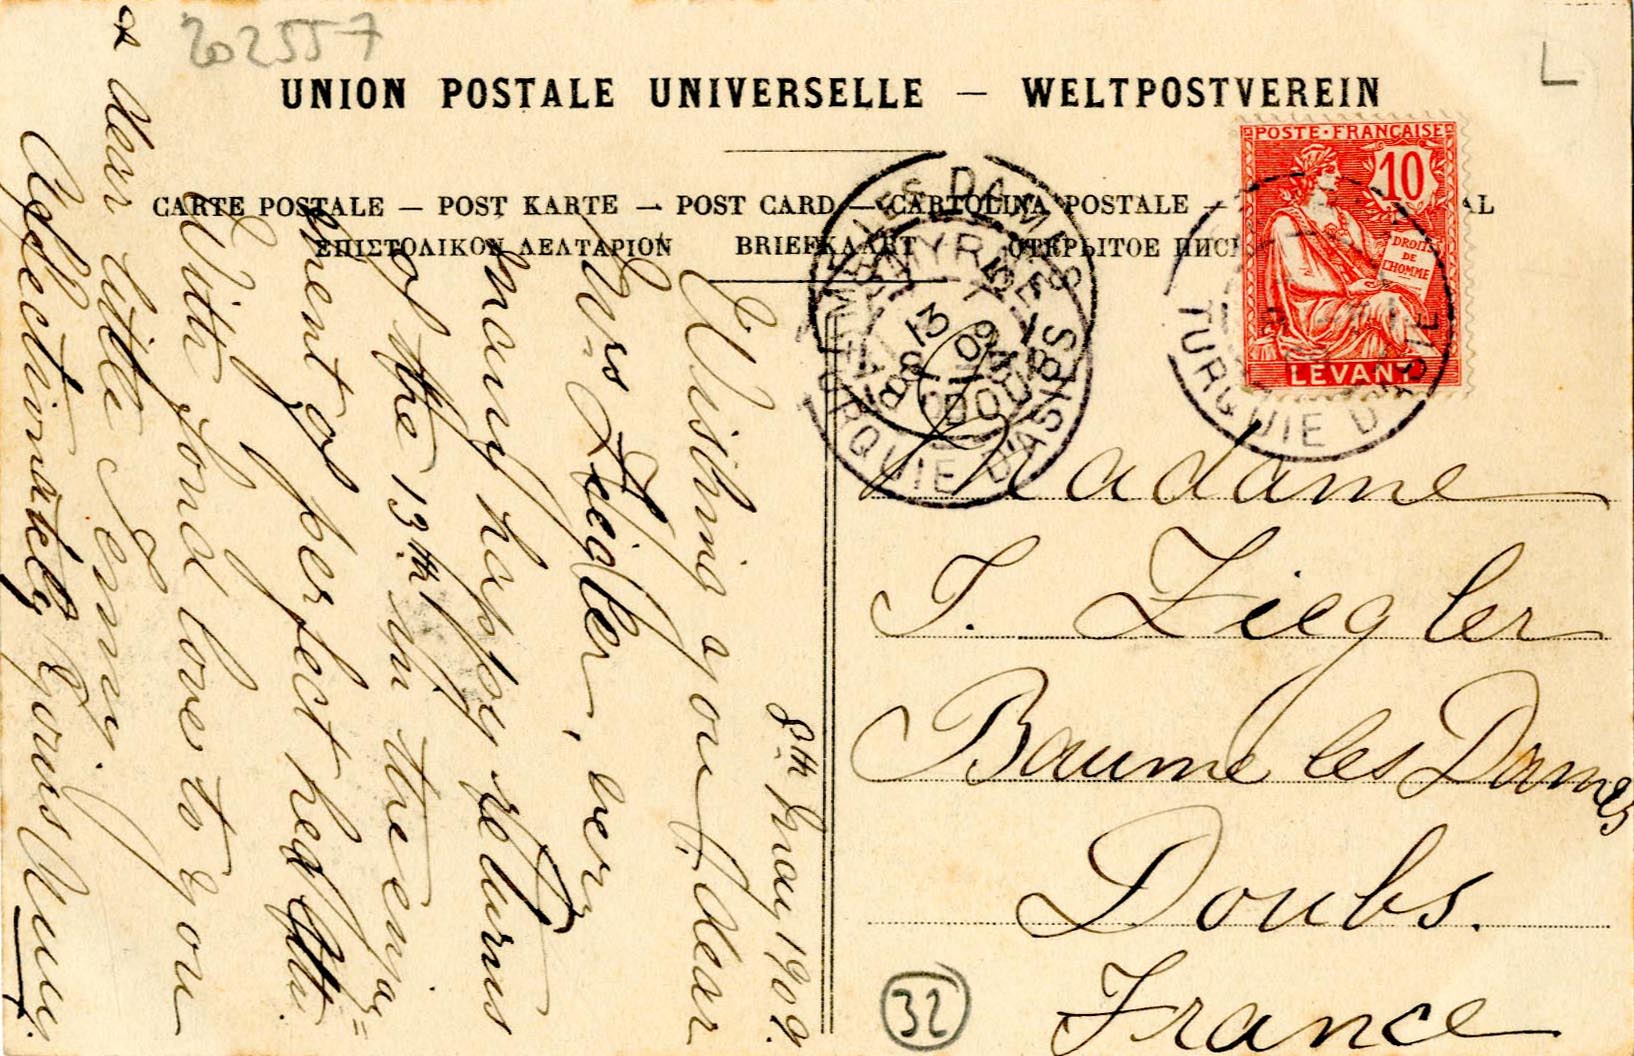 202557
L
UNION POSTALE UNIVERSELLE — WELTPOSTVEREIN
CARTE POSTALE — POST KARTE — POST CARD — CARTOLINA POSTALE —
ΕΠΙΣΤΟΛΙΚΟΝ ΔΕΛΤΑΡΙΟΝ BRIEFKAART ОТКРЫТОЕ
POSTE·FRANÇAISE
10
DROITS
DE
L'HOMME
LEVANT
TURQUIE D'ASIE
SMYRNE
13
TURQUIE D'ASIE
BAUME-LES-DAMES
DOUBS
8th May 1909.
Wishing you, dear
Mrs Ziegler, very
many happy returns
of the 13th in the enjoy=
ment of perfect health.
With fond love to you
& dear little Jenny.
Affectionately yours
Madame
J. Ziegler
Baume les Dames
Doubs.
France
32